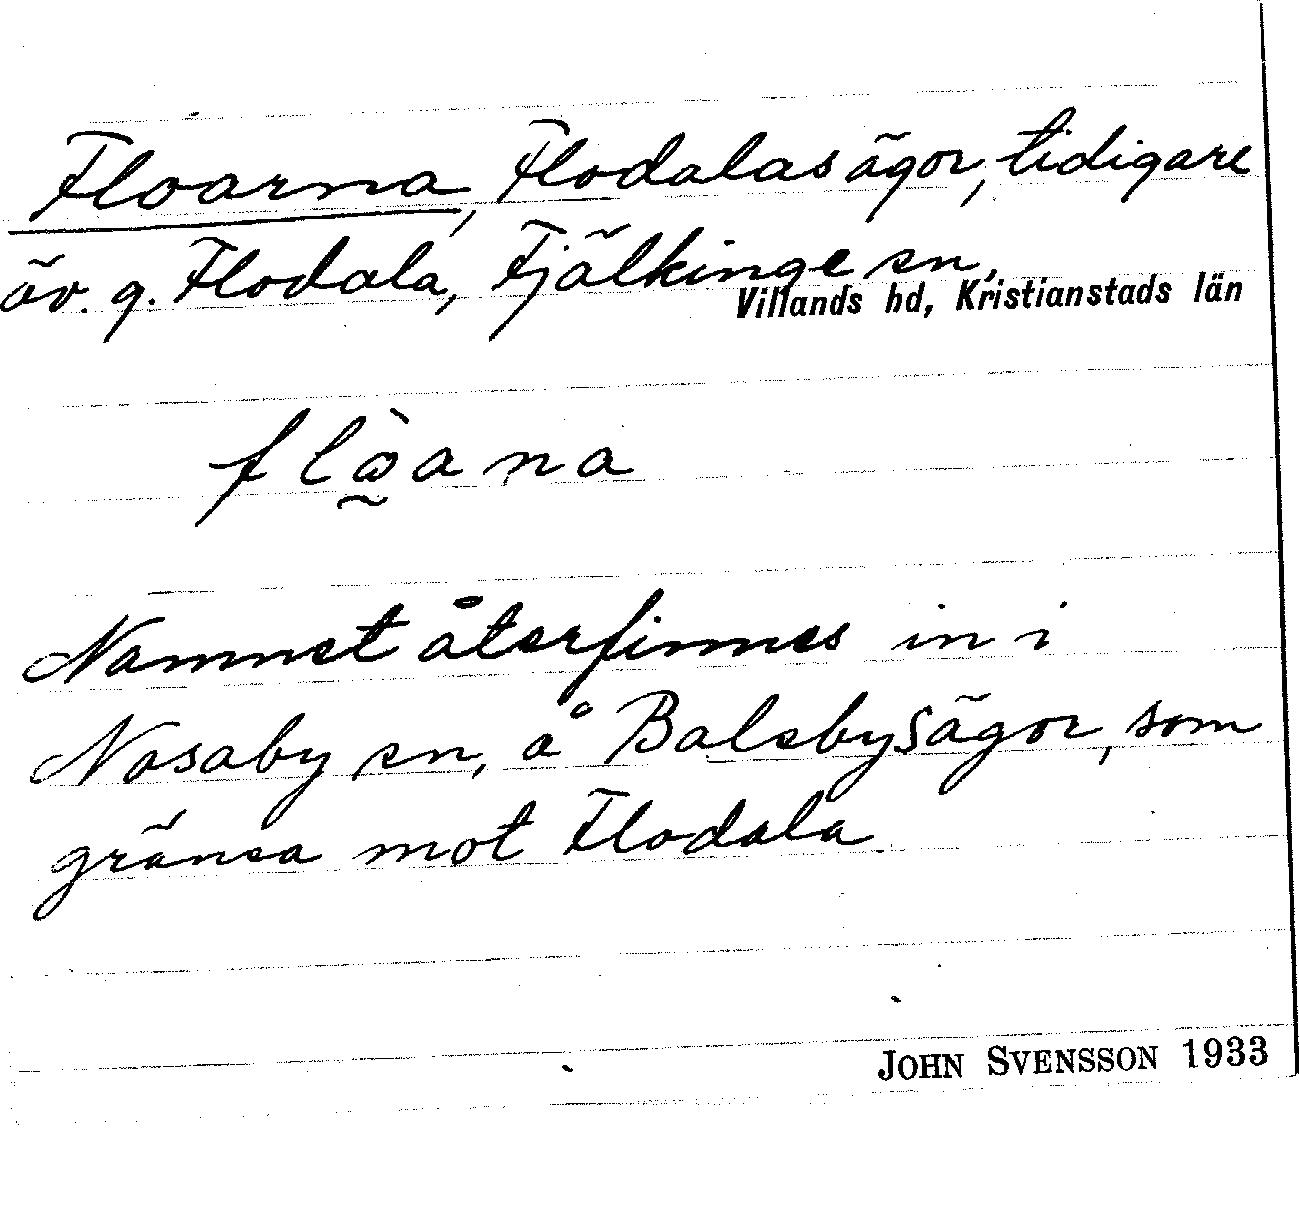 Floarna, Flodalas ägor, tidigare
äv. g. Flodala, Fjälkinge sn,
Villands hd, Kristianstads län
flò̰ana
Namnet återfinnes in i
Nosaby sn, å Balsbys ägor, som
gränsa mot Flodala
JOHN SVENSSON 1933